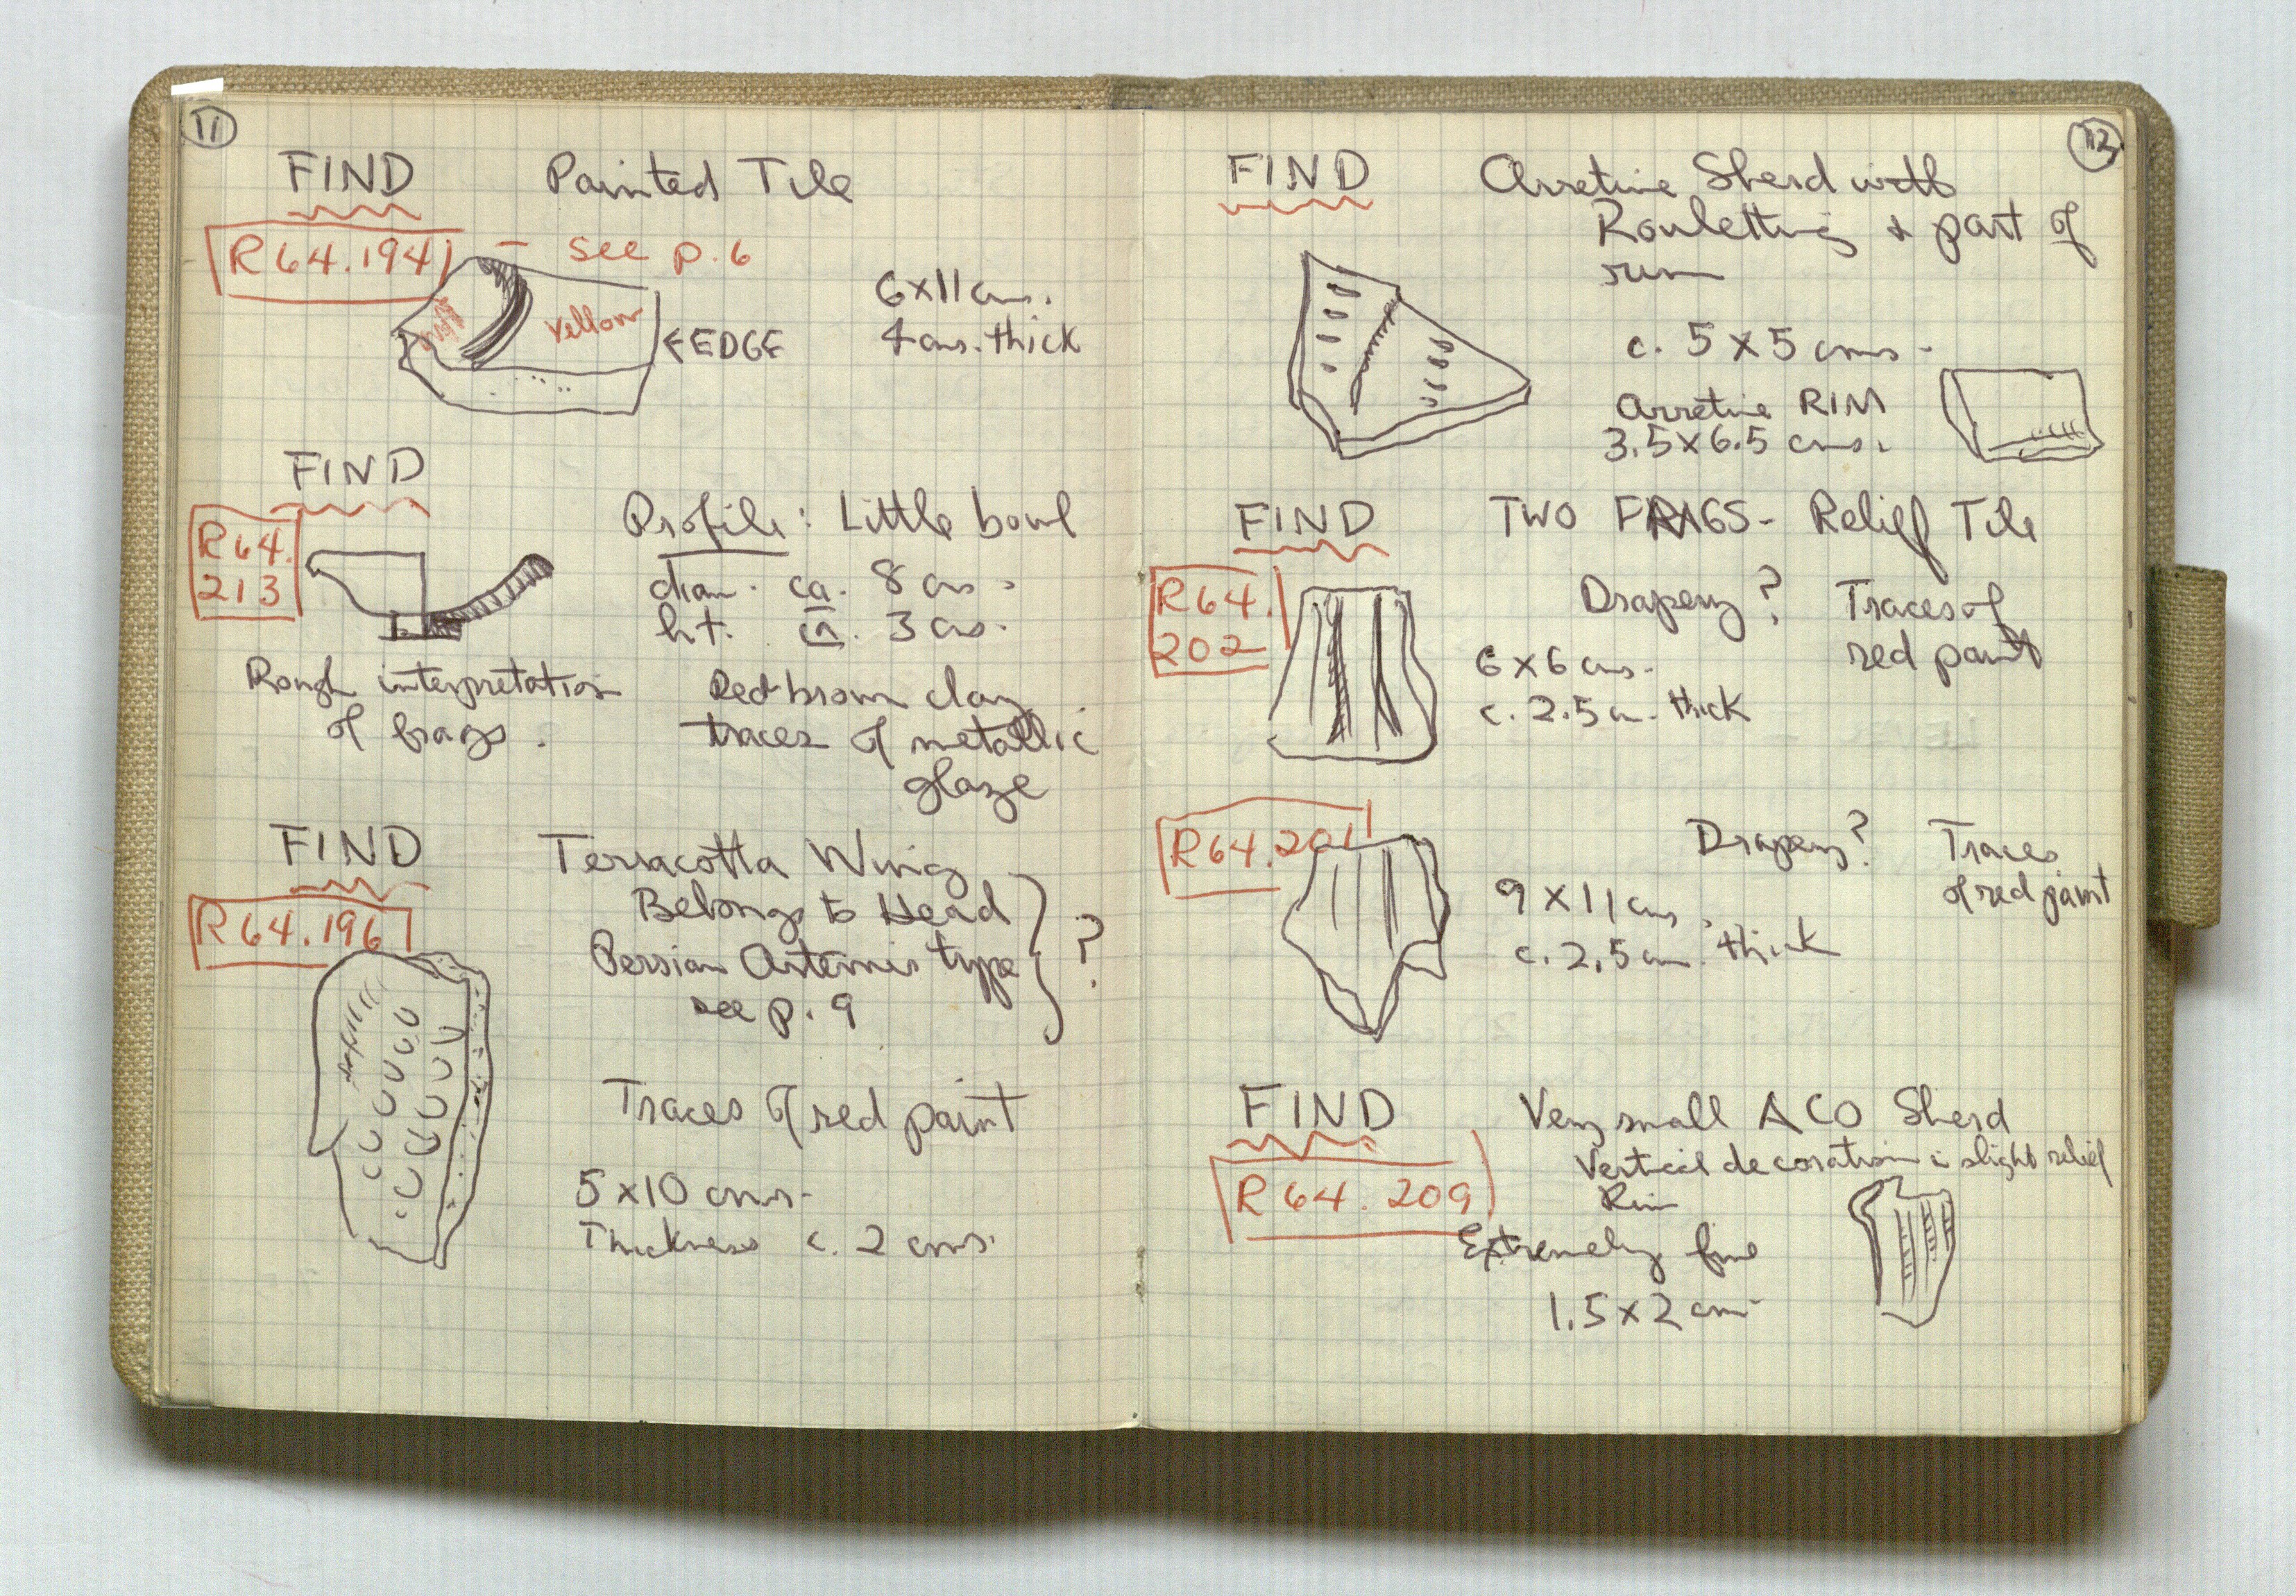 11
FIND Painted Tile
R64.194 – see p. 6
6x11 cms.
yellow
← EDGE 4 cms. thick
FIND
R64.
213
Profile: Little bowl
diam. ca. 8 cms.
ht. ca. 3 cms.
Rough interpretation
of frags.
Red brown clay
traces of metallic
glaze
FIND Terracotta Wing
R64.196
Belongs to Head
Persian Artemis type
see p. 9
?
Traces of red paint
5x10 cms.
Thickness c. 2 cms.
12
FIND Arretine Sherd with
Rouletting & part of
rim
c. 5x5 cms.
Arretine RIM
3.5x6.5 cms.
FIND TWO FRAGS- Relief Tile
R64.
202
Drapery? Traces of
red paint
6x6 cms.
c. 2.5 cm. thick
R64.201
Drapery? Traces
of red paint
9x11 cms.
c. 2.5 cm. thick
FIND Very small ACO Sherd
Vertical decoration in slight relief
R64.209
Rim
Extremely fine
1.5x2 cm.